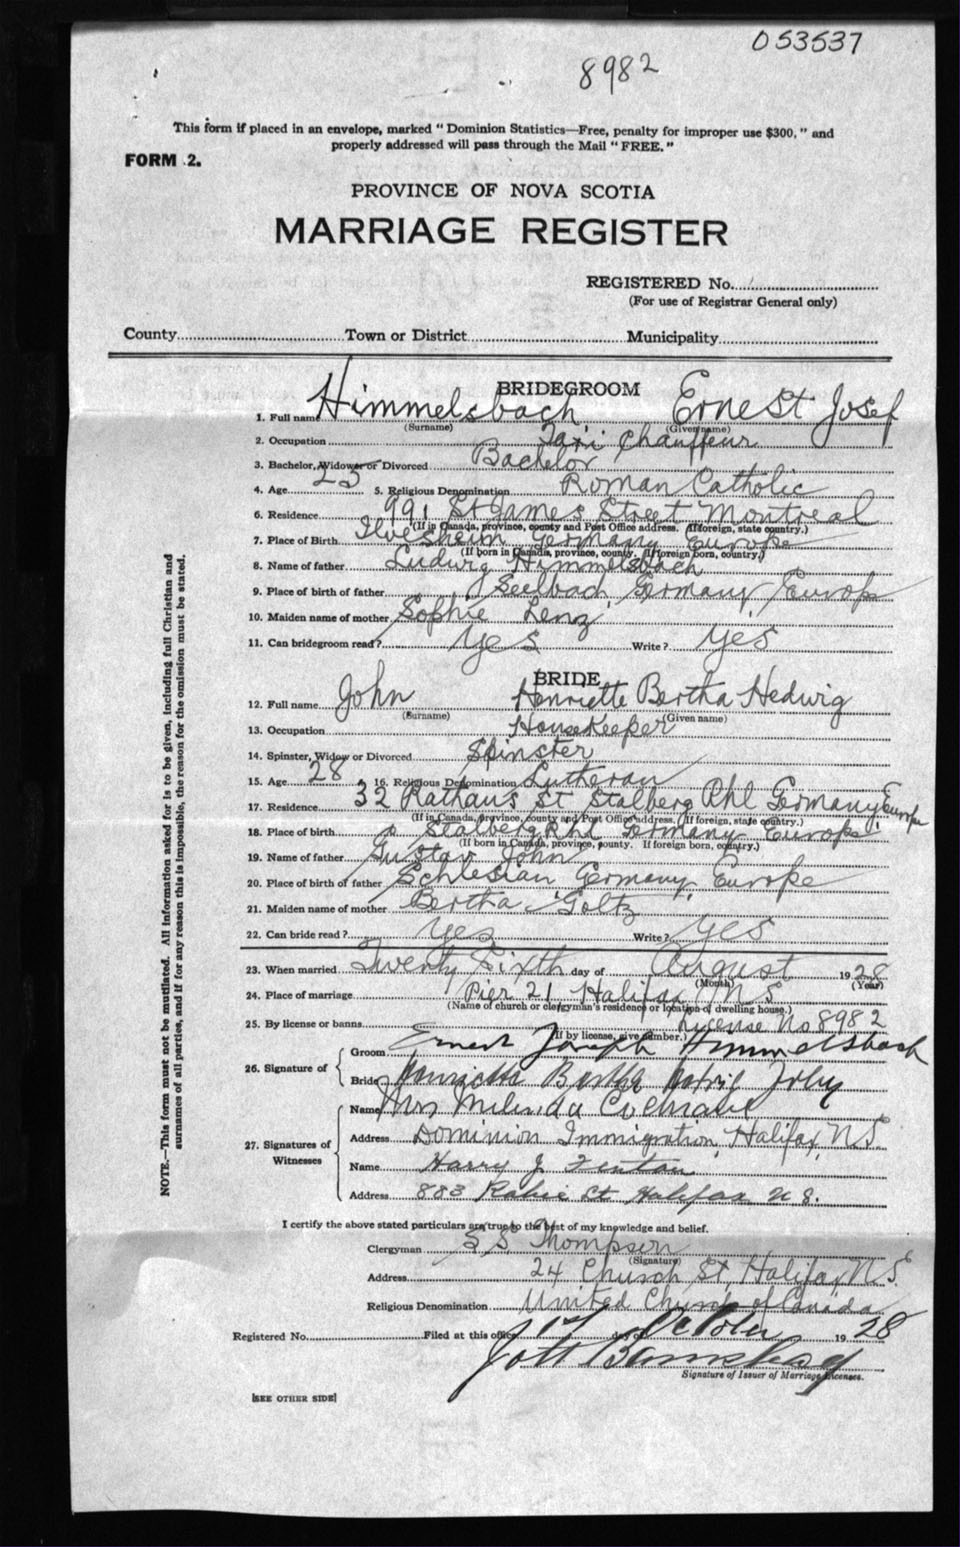 053537
8982
This form if placed in an envelope, marked "Dominion Statistics—Free, penalty for improper use $300," and
properly addressed will pass through the Mail "FREE."
FORM 2.
PROVINCE OF NOVA SCOTIA
MARRIAGE REGISTER
REGISTERED No.
(For use of Registrar General only)
County Town or District Municipality
BRIDEGROOM
1. Full name Himmelsbach Ernest Josef
(Surname) (Given name)
2. Occupation Taxi Chauffeur
3. Bachelor, Widower or Divorced Bachelor
4. Age 25 5. Religious Denomination Roman Catholic
6. Residence 991 St James Street Montreal
(If in Canada, province, county and Post Office address. If foreign, state country.)
7. Place of Birth Ilvesheim Germany Europe
(If born in Canada, province, county. If foreign born, country.)
8. Name of father Ludwig Himmelsbach
9. Place of birth of father Seelbach Germany Europe
10. Maiden name of mother Sophie Lenz
11. Can bridegroom read? Yes Write? Yes
BRIDE
12. Full name John Henriette Bertha Hedwig
(Surname) (Given name)
13. Occupation Housekeeper
14. Spinster, Widow or Divorced Spinster
15. Age 28 16. Religious Denomination Lutheran
17. Residence 32 Rathaus St Stalberg Rhl Germany Europe
(If in Canada, province, county and Post Office address. If foreign, state country.)
18. Place of birth Stalberg Rhl Germany Europe
(If born in Canada, province, county. If foreign born, country.)
19. Name of father Gustav John
20. Place of birth of father Schlesian Germany Europe
21. Maiden name of mother Bertha Goltz
22. Can bride read? Yes Write? Yes
23. When married Twenty Sixth day of August 1928
(Month) (Year)
24. Place of marriage Pier 21 Halifax N S
(Name of church or clergyman's residence or location of dwelling house.)
25. By license or banns License No 8982
(If by license, give number.)
26. Signature of
Groom Ernest Joseph Himmelsbach
Bride Henriette Bertha
27. Signatures of Witnesses
Name Mrs Melinda Cochrane
Address Dominion Immigration, Halifax, N.S.
Name Harry J. Fenton
Address 883 Robie St Halifax N S.
I certify the above stated particulars are true to the best of my knowledge and belief.
Clergyman S S Thompson
(Signature)
Address 24 Church St, Halifax N S.
Religious Denomination United Church of Canada
Registered No. Filed at this office 1st day of October 1928
Signature of Issuer of Marriage Licenses.
[SEE OTHER SIDE]
NOTE.—This form must not be mutilated. All information asked for is to be given, including full Christian and
surnames of all parties, and if for any reason this is impossible, the reason for the omission must be stated.